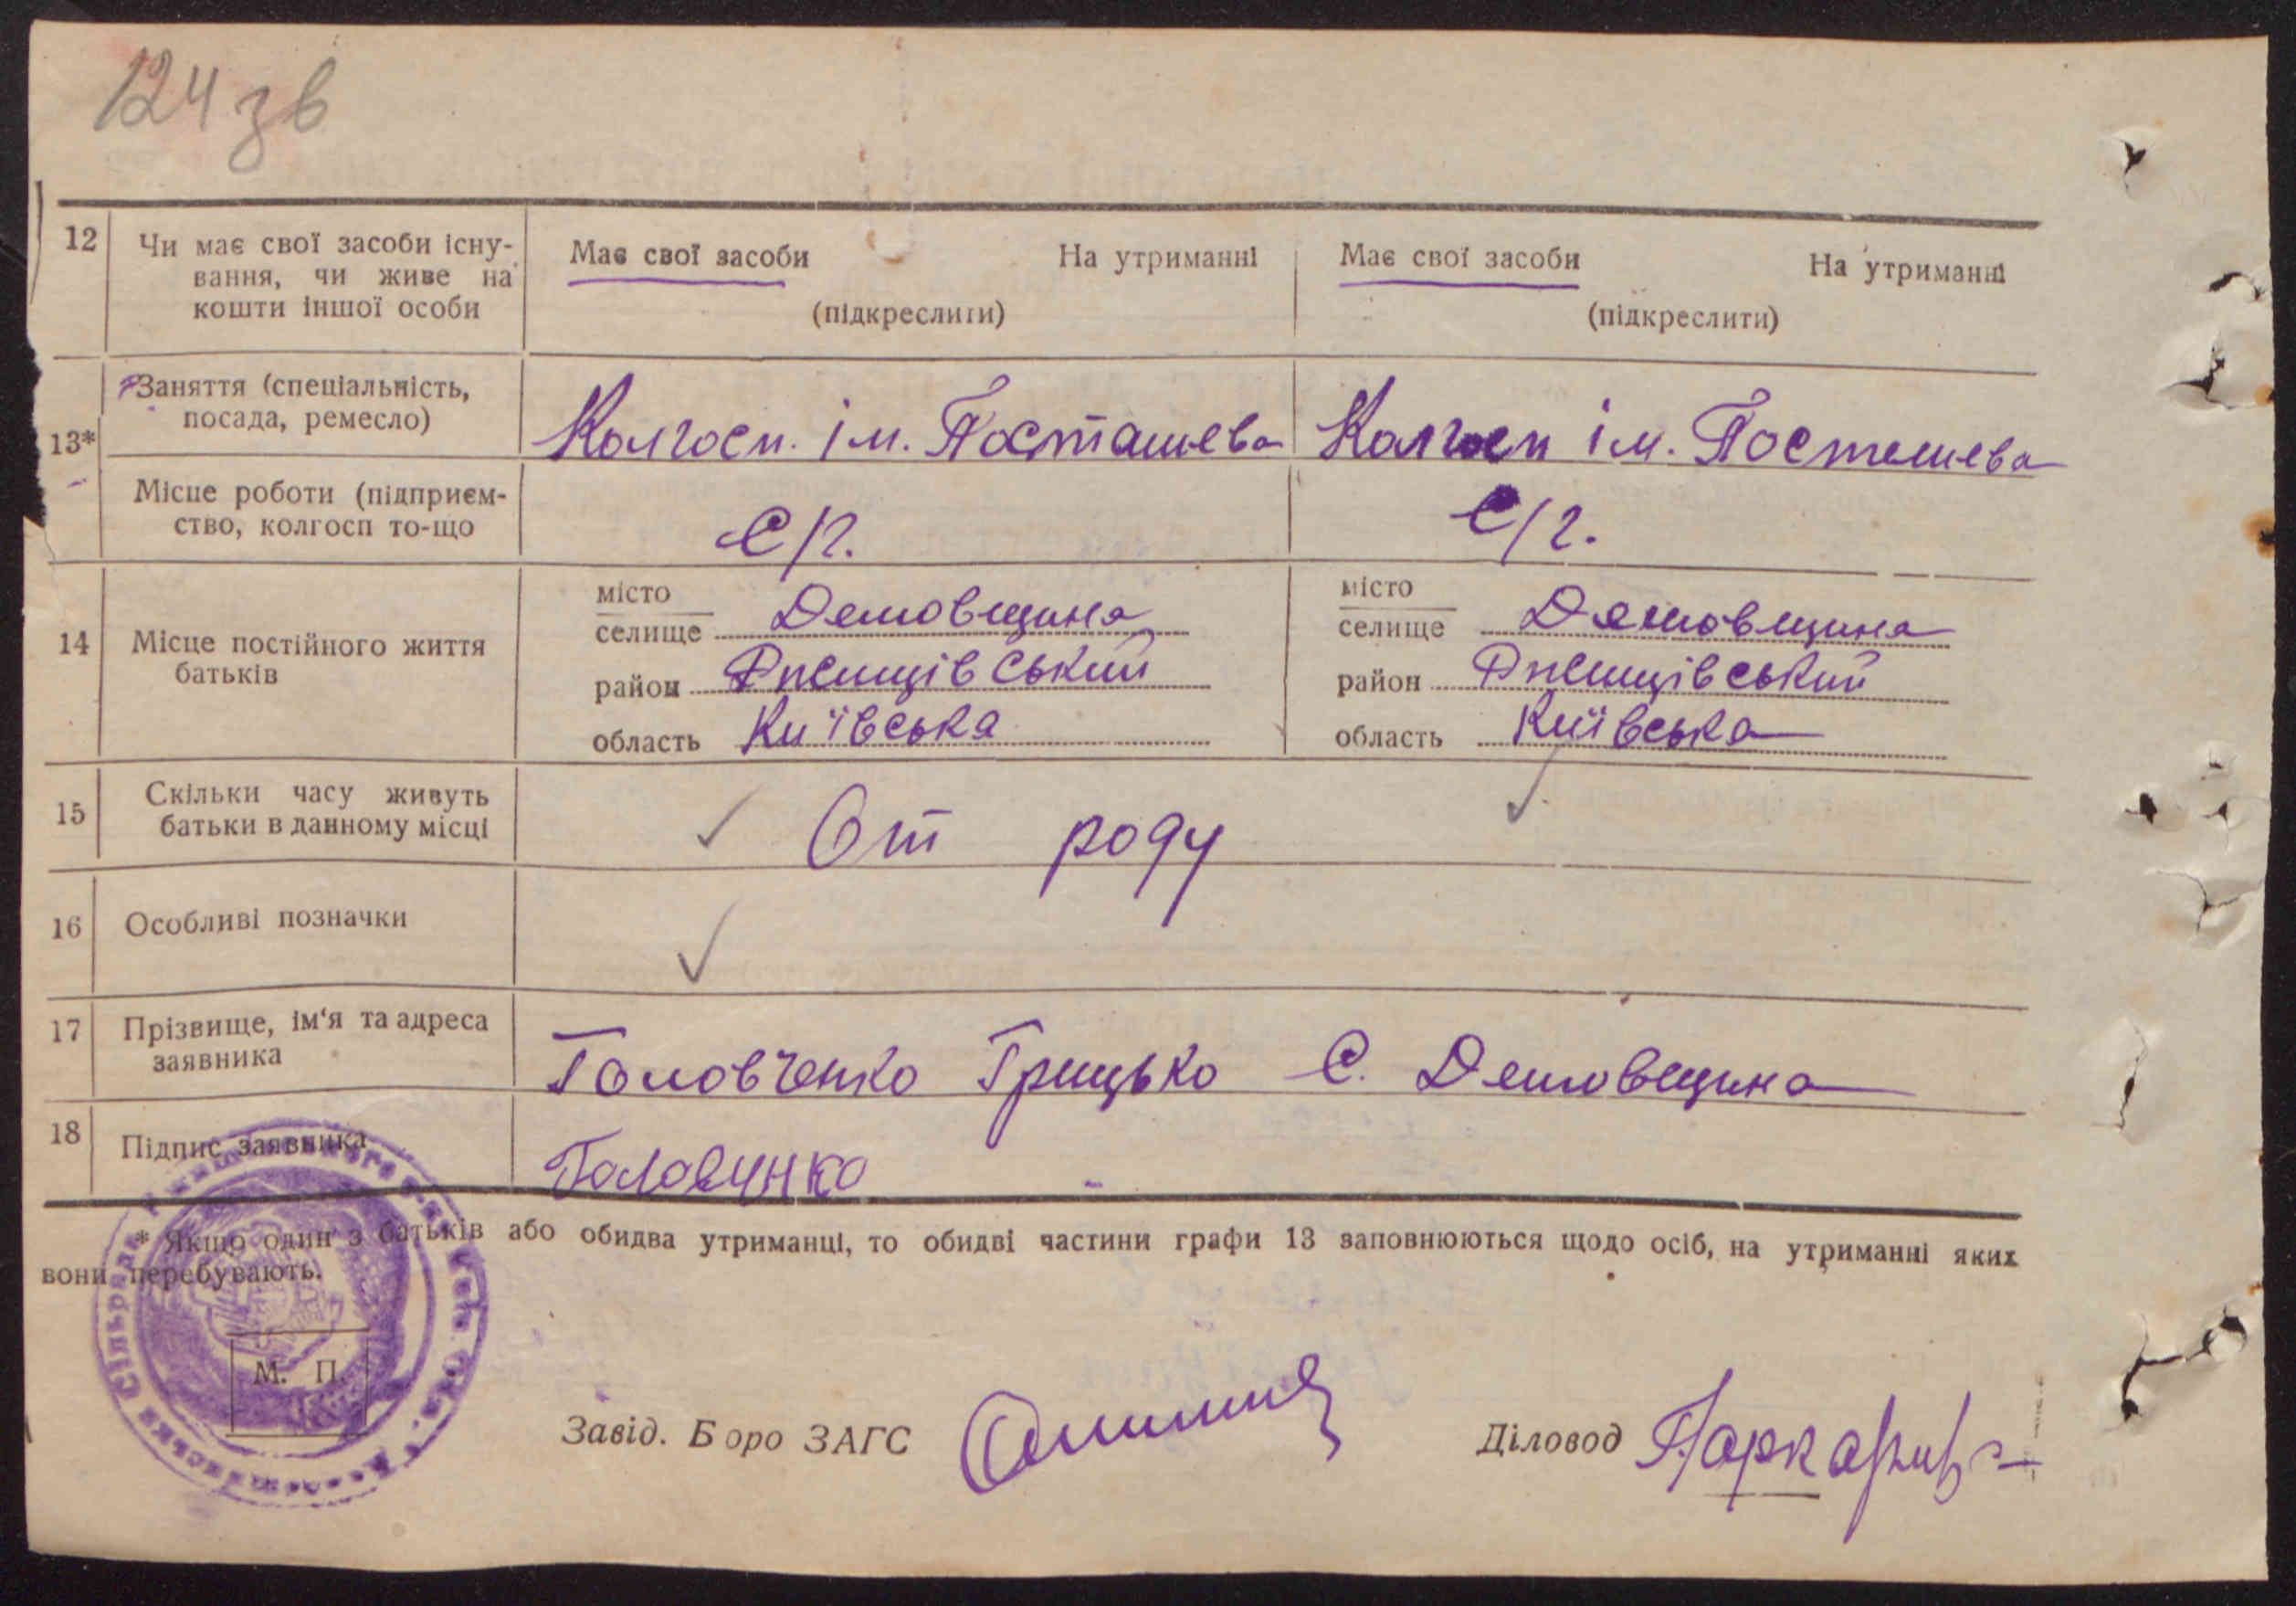 124 зв
12 Чи має свої засоби існу-
вання, чи живе на
кошти іншої особи
Має свої засоби На утриманні
(підкреслити)
Має свої засоби На утриманні
(підкреслити)
13* Заняття (спеціальність,
посада, ремесло)
Колгосп. ім. Посташева Колгосп ім. Постешева
Місце роботи (підприєм-
ство, колгосп то-що
С/г. С/г.
14 Місце постійного життя
батьків
місто
селище Демовщина
район Ржищівський
область Київська
місто
селище Демовщина
район Ржищівський
область Київська
15 Скільки часу живуть
батьки в данному місці
От роду
16 Особливі позначки
17 Прізвище, ім'я та адреса
заявника
Головченко Грицько С. Демовщина
18 Підпис заявника
Головчнко
* Якщо один з батьків або обидва утриманці, то обидві частини графи 13 заповнюються щодо осіб, на утриманні яких
вони перебувають.
М. П.
Завід. Бюро ЗАГС
Діловод